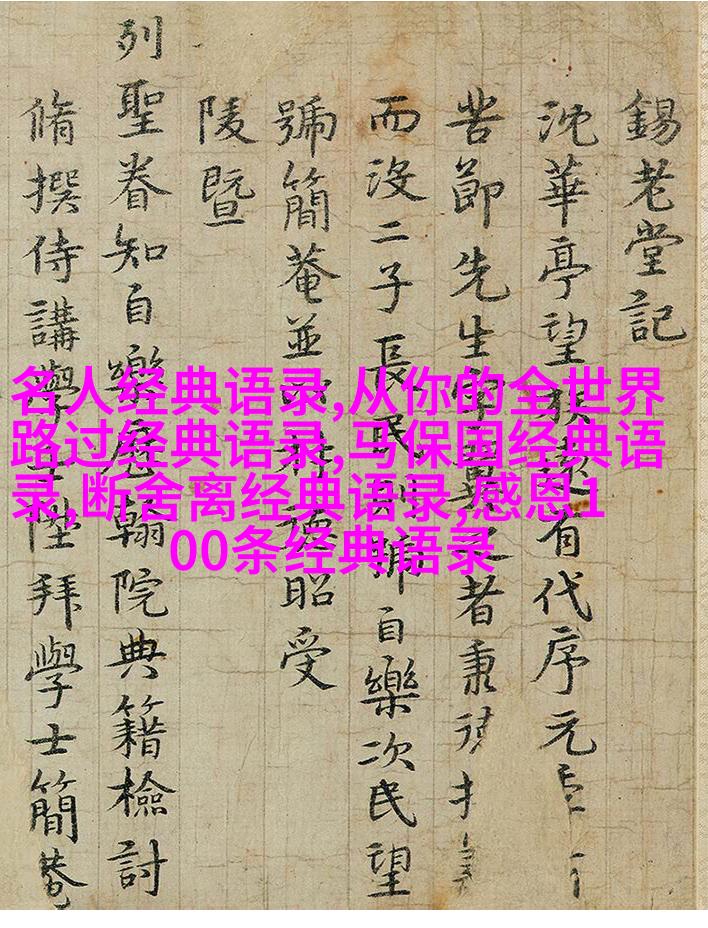 錫老堂記
沈華亭望族有代序元
苦節先生者秉
而沒二子長民則號自樂次民望
號簡菴並德昭受
陵暨
列聖眷知自樂翰院典籍檢討
脩撰侍講學士陞拜學士簡菴
名人经典语录,从你的全世界
路过经典语录,马保国经典语
录,断舍离经典语录,感恩1
00条经典语录